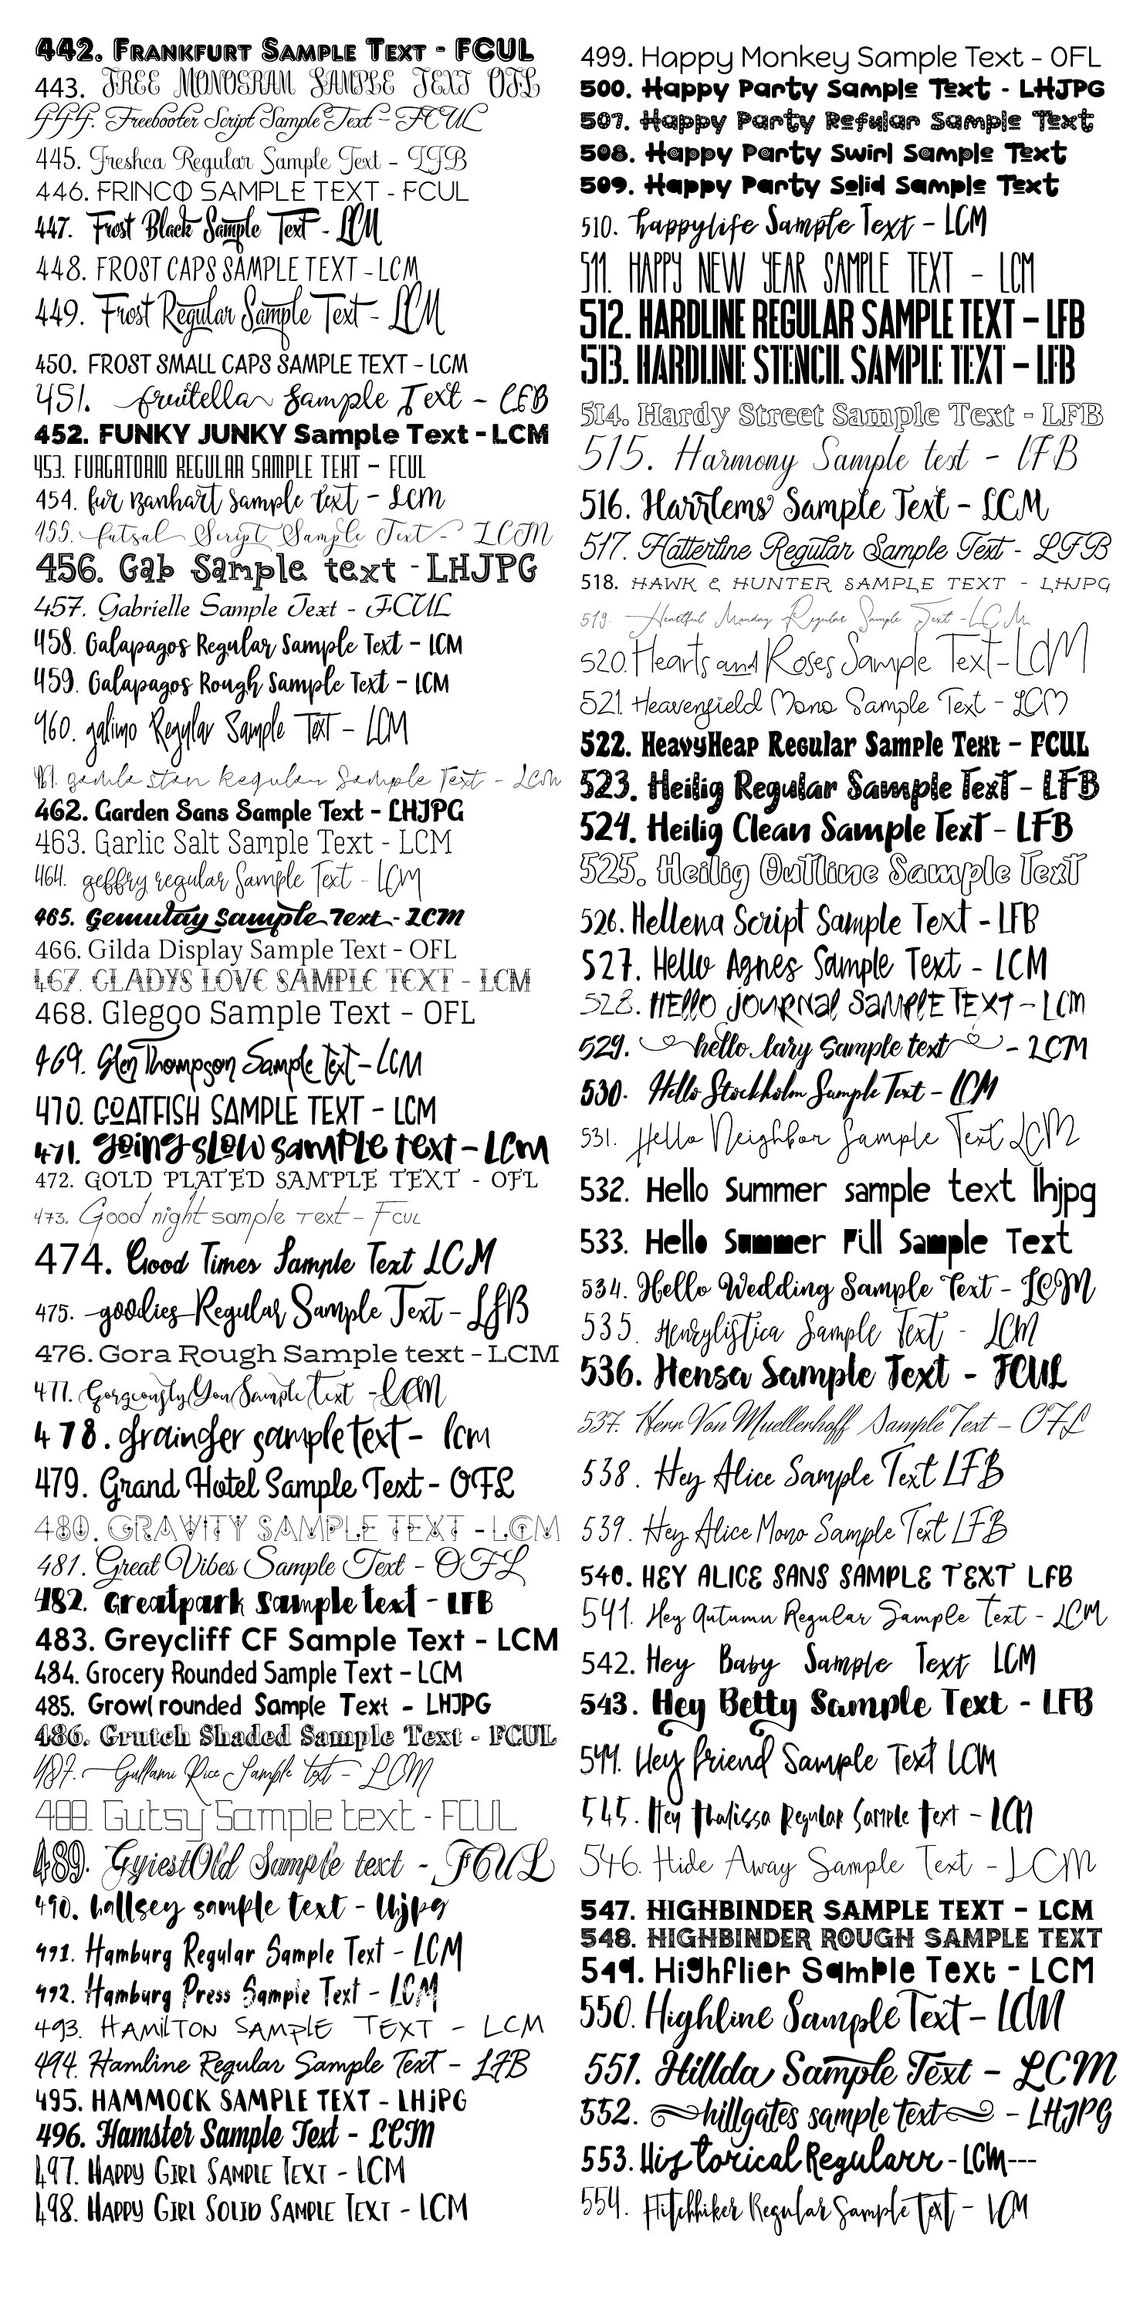 442. Frankfurt Sample Text - FCUL
443. FREE MONOGRAM SAMPLE TEXT OFL
444. Freebooter Script Sample Text - FCUL
445. Freshca Regular Sample Text - LFB
446. FRINCO SAMPLE TEXT - FCUL
447. Frost Black Sample Text - LCM
448. FROST CAPS SAMPLE TEXT - LCM
449. Frost Regular Sample Text - LCM
450. FROST SMALL CAPS SAMPLE TEXT - LCM
451. fruitella Sample Text - LFB
452. FUNKY JUNKY Sample Text - LCM
453. FURGATORIO REGULAR SAMPLE TEXT - FCUL
454. fur Banhart Sample text - LCM
455. futsal Script Sample Text - LCM
456. Gab Sample text - LHJPG
457. Gabrielle Sample Text - FCUL
458. Galapagos Regular Sample Text - LCM
459. Galapagos Rough Sample Text - LCM
460. galimo Regular Sample Text - LCM
461. gamla stan Regular Sample Text - LCM
462. Garden Sans Sample Text - LHJPG
463. Garlic Salt Sample Text - LCM
464. geffry regular Sample Text - LCM
465. Gemulay Sample Text - LCM
466. Gilda Display Sample Text - OFL
467. GLADYS LOVE SAMPLE TEXT - LCM
468. Glegoo Sample Text - OFL
469. Glen Thompson Sample Text - LCM
470. GOATFISH SAMPLE TEXT - LCM
471. going slow sample text - LCM
472. GOLD PLATED SAMPLE TEXT - OFL
473. Good night sample Text - FCUL
474. Good Times Sample Text LCM
475. goodies Regular Sample Text - LFB
476. Gora Rough Sample text - LCM
477. Gorgeously You Sample text - LCM
478. grainger sample text - lcm
479. Grand Hotel Sample Text - OFL
480. GRAVITY SAMPLE TEXT - LCM
481. Great Vibes Sample Text - OFL
482. Greatpark Sample text - LFB
483. Greycliff CF Sample Text - LCM
484. Grocery Rounded Sample Text - LCM
485. Growl rounded Sample Text - LHJPG
486. Grutch Shaded Sample Text - FCUL
487. Gullami Rice Sample text - LCM
488. Gutsy Sample text - FCUL
489. GyiestOld Sample text - FCUL
490. hallsey sample text - lhjpg
491. Hamburg Regular Sample Text - LCM
492. Hamburg Press Sample Text - LCM
493. HAMILTON SAMPLE TEXT - LCM
494. Hamline Regular Sample Text - LFB
495. HAMMOCK SAMPLE TEXT - LHJPG
496. Hamster Sample Text - LCM
497. Happy Girl Sample Text - LCM
498. Happy Girl Solid Sample Text - LCM
499. Happy Monkey Sample Text - OFL
500. Happy Party Sample Text - LHJPG
507. Happy Party Refular Sample Text
508. Happy Party Swirl Sample Text
509. Happy Party Solid Sample Text
510. happylife Sample Text - LCM
511. HAPPY NEW YEAR SAMPLE TEXT - LCM
512. HARDLINE REGULAR SAMPLE TEXT - LFB
513. HARDLINE STENCIL SAMPLE TEXT - LFB
514. Hardy Street Sample Text - LFB
515. Harmony Sample test - LFB
516. Harrlems Sample Text - LCM
517. Hatterline Regular Sample Text - LFB
518. HAWK & HUNTER SAMPLE TEXT - LHJPG
519. Heartful Monday Regular Sample Text - LCM
520. Hearts and Roses Sample Text - LCM
521. Heavenfield Mono Sample Text - LCM
522. HeavyHeap Regular Sample Text - FCUL
523. Heilig Regular Sample Text - LFB
524. Heilig Clean Sample Text - LFB
525. Heilig Outline Sample Text
526. Hellena Script Sample Text - LFB
527. Hello Agnes Sample Text - LCM
528. HELLO JOURNAL SAMPLE TEXT - LCM
529. hello lary Sample text - LCM
530. Hello Stockholm Sample Text - LCM
531. Hello Neighbor Sample Text LCM
532. Hello Summer sample text lhjpg
533. Hello Summer Fill Sample Text
534. Hello Wedding Sample Text - LCM
535. Henrylistica Sample Text - LCM
536. Hensa Sample Text - FCUL
537. Herr Von Muellerhoff Sample Text - OFL
538. Hey Alice Sample Text LFB
539. Hey Alice Mono Sample Text LFB
540. HEY ALICE SANS SAMPLE TEXT LFB
541. Hey Autumn Regular Sample Text - LCM
542. Hey Baby Sample Text LCM
543. Hey Betty Sample Text - LFB
544. Hey friend Sample Text LCM
545. Hey Thalissa Regular Sample Text - LCM
546. Hide Away Sample Text - LCM
547. HIGHBINDER SAMPLE TEXT - LCM
548. HIGHBINDER ROUGH SAMPLE TEXT
549. Highflier Sample Text - LCM
550. Highline Sample Text - LCM
551. Hillda Sample Text - LCM
552. hillgates sample text - LHJPG
553. Historical Regularr - LCM---
554. Hitchhiker Regular Sample Text - LCM